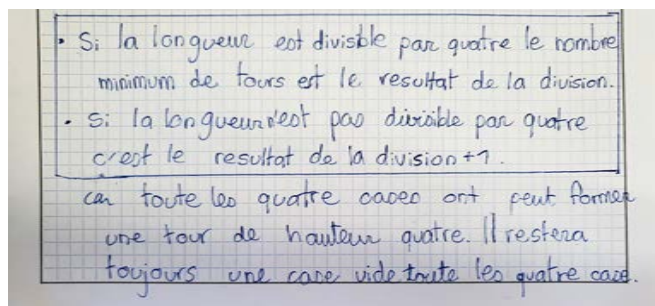 • Si la longueur est divisible par quatre le nombre
minimum de tours est le resultat de la division.
• Si la longueur n'est pas divisible par quatre
c'est le resultat de la division +1.
car toute les quatre cases ont peut former
une tour de hauteur quatre. Il restera
toujours une case vide toute les quatre case.